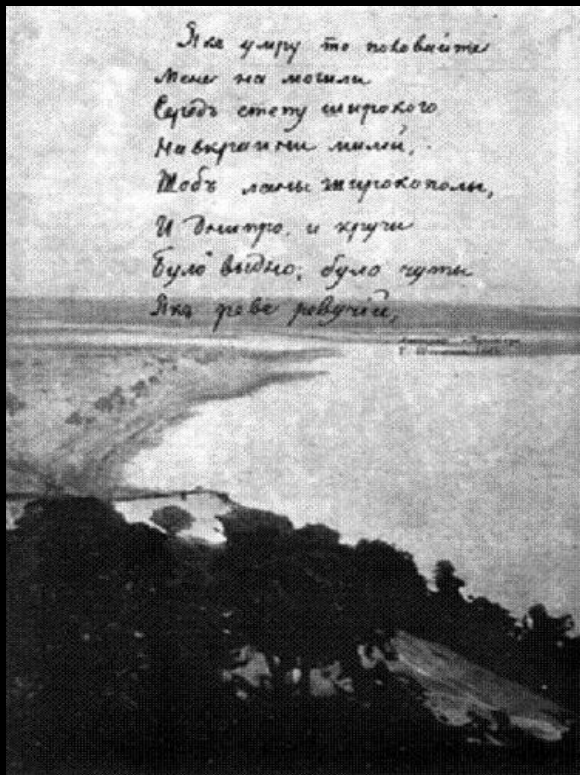 Якъ умру то поховайте
Мене на могили
Середъ степу широкого
На вкраини милій,
Щобъ ланы широкополы,
И Днипро, и кручи
Було выдно, було чуты
Якъ реве ревучій,